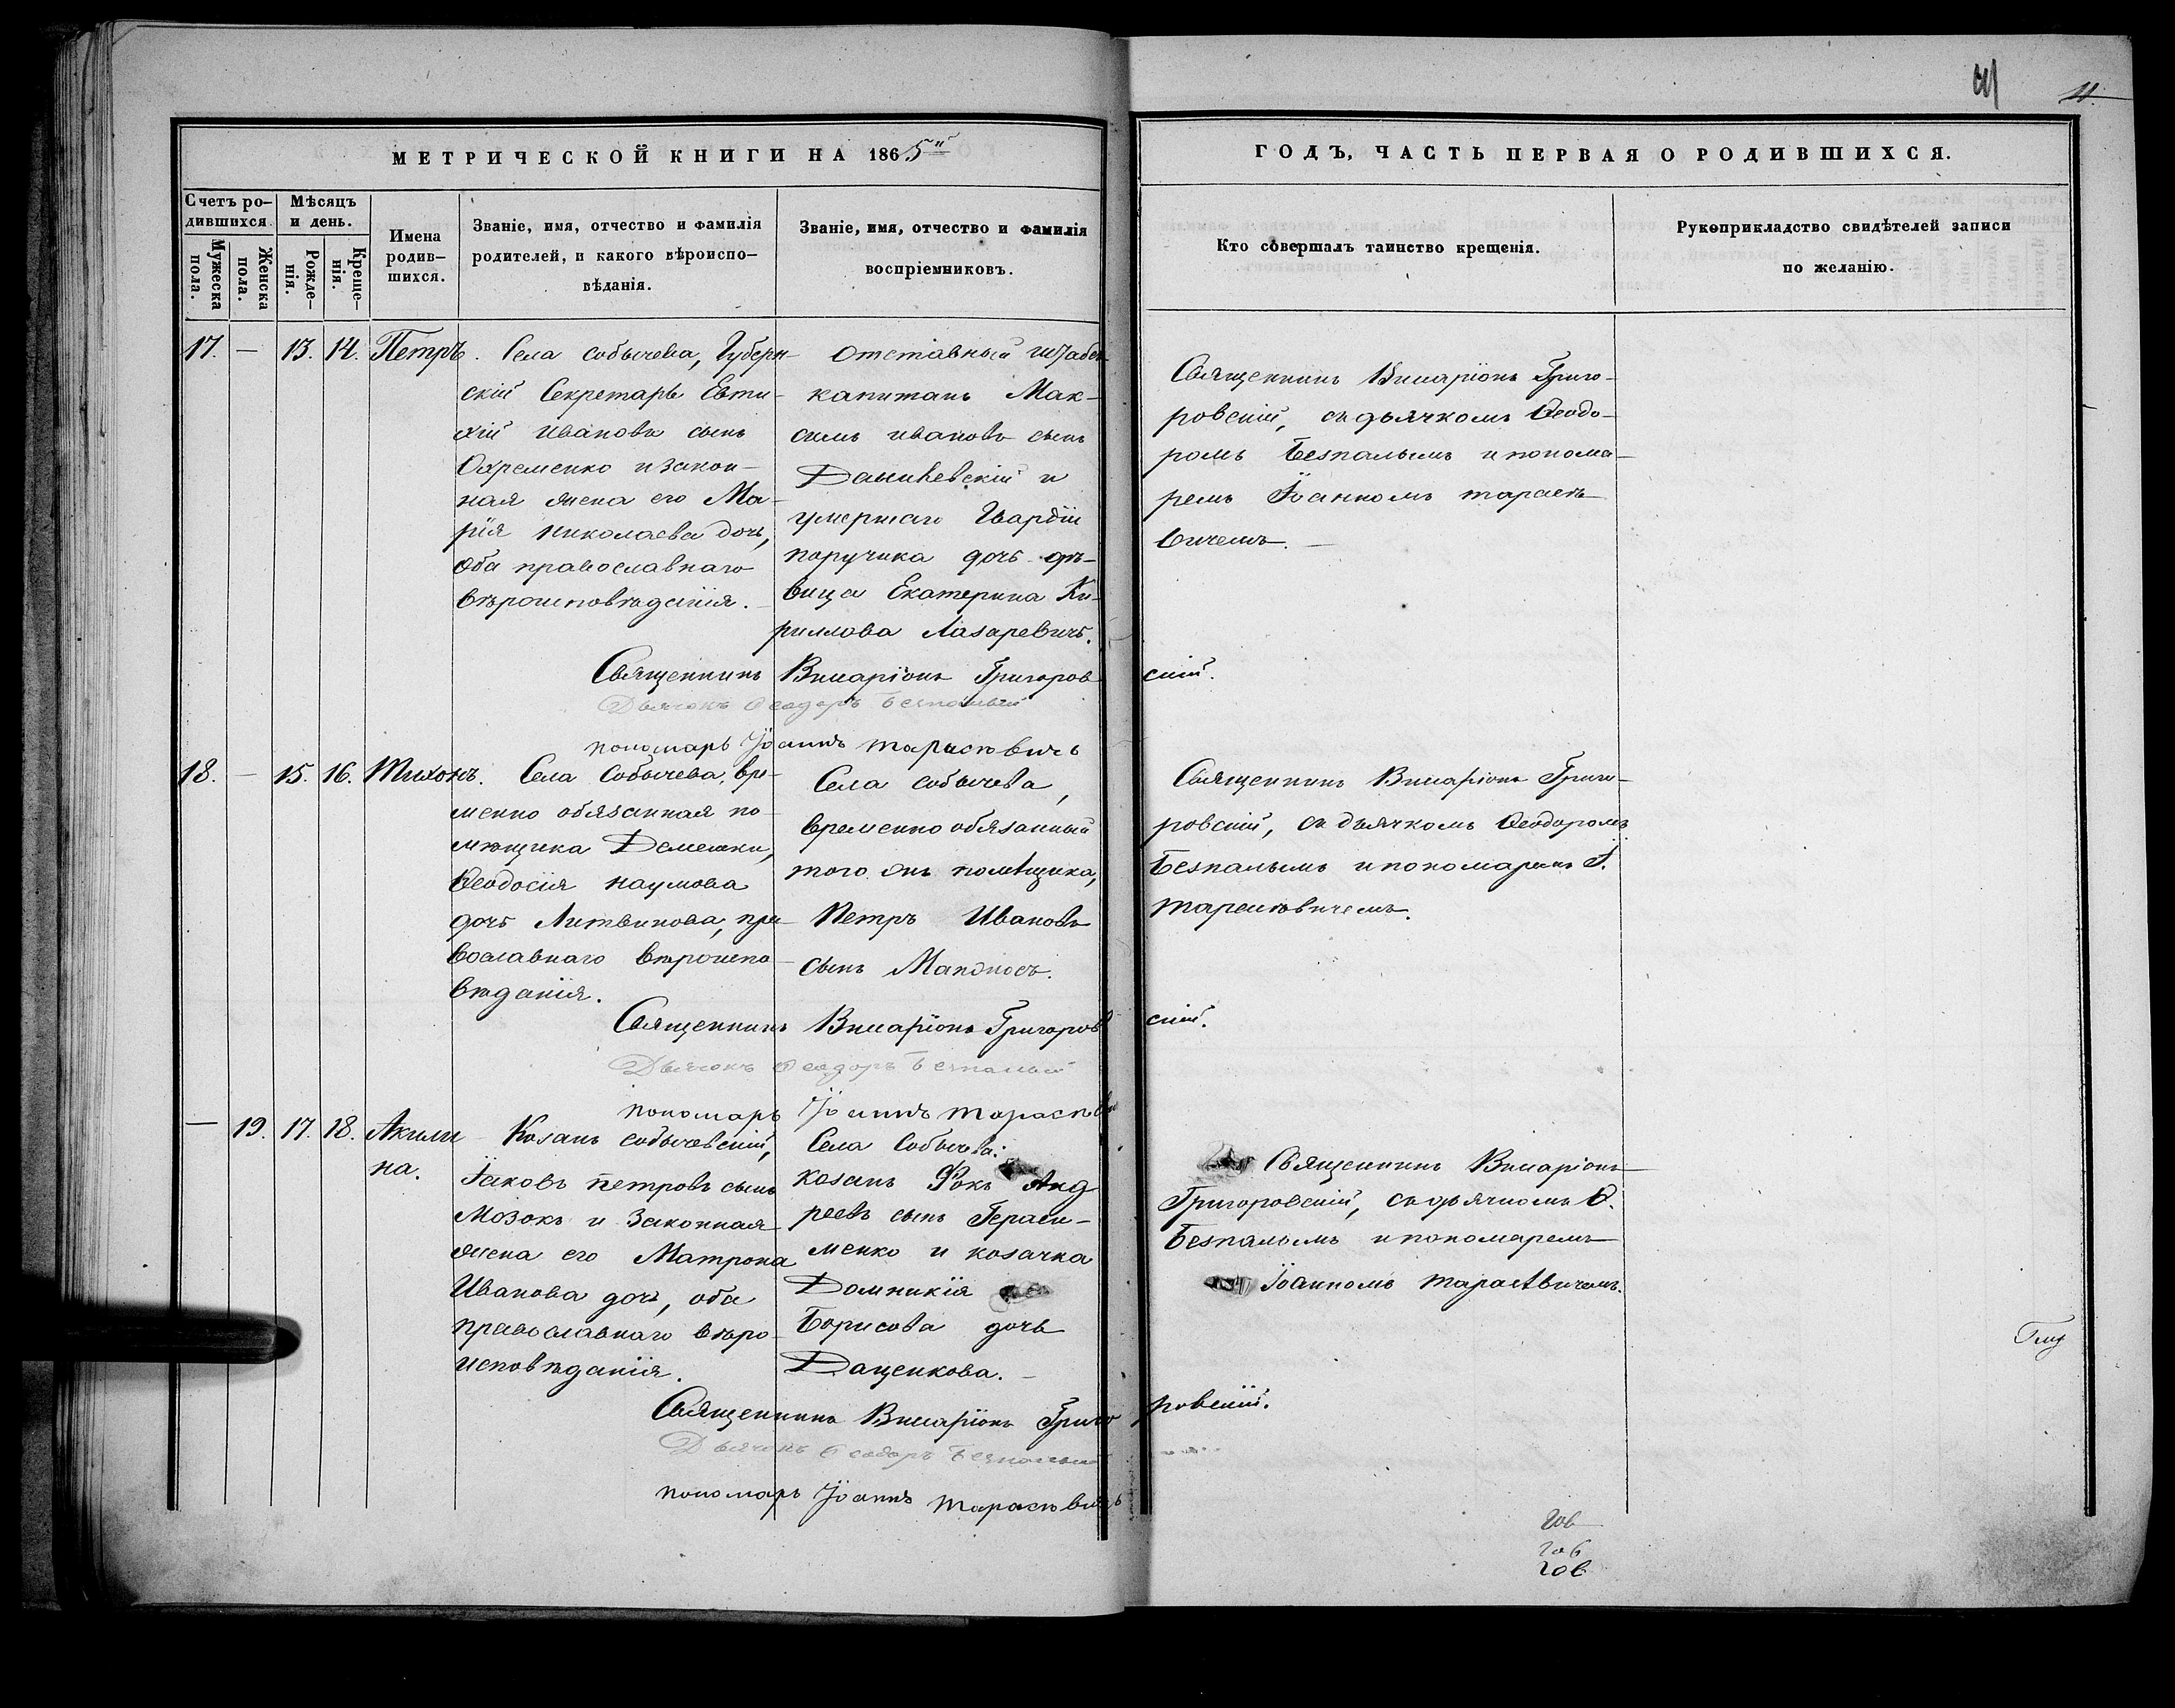 11.
МЕТРИЧЕСКОЙ КНИГИ НА 1865й
ГОДЪ, ЧАСТЬ ПЕРВАЯ О РОДИВШИХСЯ.
Счетъ ро-
дившихся
Мужеска
пола.
Женска
пола.
Мѣсяцъ
и день.
Рожде-
нія.
Креще-
нія.
Имена
родив-
шихся.
Званіе, имя, отчество и фамилія
родителей, и какого вѣроиспо-
вѣданія.
Званіе, имя, отчество и фамилія
воспріемниковъ.
Кто совершалъ таинство крещенія.
Рукоприкладство свидѣтелей записи
по желанію.
17. — 13. 14. Петръ.
Села собычева, Губерн-
скій Секретарь Евти-
хій Ивановъ сынъ
Охременко и закон-
ная жена его Ма-
рія Николаева дочь,
оба православнаго
вѣроисповѣданія.
Отставный штабсъ
капитанъ Мак-
симъ Ивановъ сынъ
и
умершаго Гвардіи
поручика дочь дѣ-
вица Екатерина Ки-
риллова Лазаревичъ.
Священникъ Григо-
ровскій, съ дьячкомъ Ѳеодо-
ромъ Безпалымъ и понома-
ремъ Іоанномъ Тарасѣ-
вичемъ. —
Священникъ Григоров
скій.
Дьячокъ Ѳеодоръ Безпалый
пономарь Іоаннъ Тарасѣвичъ
18. — 15. 16. Тихонъ.
Села Собычева, вре-
менно обязанная по-
мѣщика
Ѳеодосія Наумова
дочь Литвинова, пра-
вославнаго вѣроиспо-
вѣданія.
Села собычева,
временно обязанный
того жъ помѣщика,
Петръ Ивановъ
сынъ
Священникъ Григо-
ровскій, съ дьячкомъ Ѳеодоромъ
Безпалымъ и пономаремъ І.
Тарасѣвичемъ.
Священникъ Григоров
скій.
Дьячокъ Ѳеодоръ Безпалый
пономарь Іоаннъ Тарасѣвичъ
— 19. 17. 18. Акили
на.
Козакъ собычевскій,
Іаковъ Петровъ сынъ
Мозокъ и законная
жена его Матрона
Иванова дочь, оба
православнаго вѣро-
исповѣданія.
Села Собычева:
козакъ Фока Анд
реевъ сынъ Гераси-
менко и козачка
Домникія
Борисова дочь
Даценкова. —
Священникъ
Григоровскій, съ дьячкомъ Ѳ.
Безпалымъ и пономаремъ
Іоанномъ Тарасѣвичемъ.
Священникъ Григо
ровскій.
Дьячокъ Ѳеодоръ Безпалый
пономарь Іоаннъ Тарасѣвичъ
206
206
206